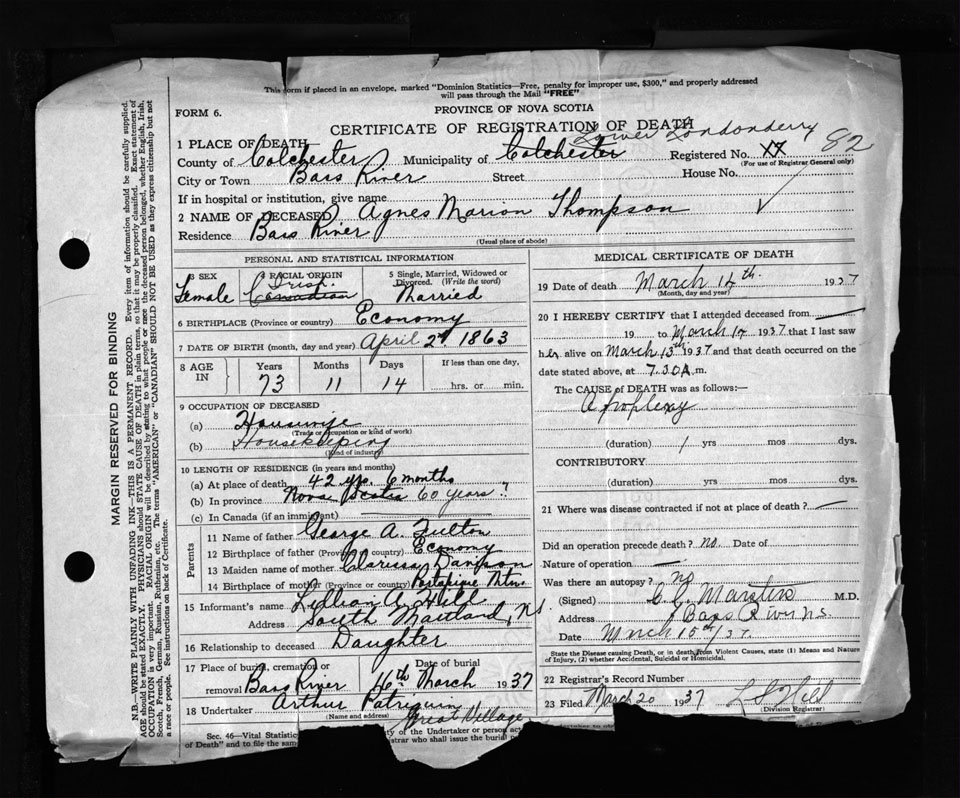 This form if placed in an envelope, marked "Dominion Statistics—Free, penalty for improper use, $300," and properly addressed
will pass through the Mail "FREE"
FORM 6.
PROVINCE OF NOVA SCOTIA
CERTIFICATE OF REGISTRATION OF DEATH
Lower Londonderry
82
1 PLACE OF DEATH
County of Colchester Municipality of Colchester Registered No.
(For use of Registrar General only)
City or Town Bass River Street House No.
If in hospital or institution, give name
2 NAME OF DECEASED Agnes Marion Thompson
Residence Bass River
(Usual place of abode)
PERSONAL AND STATISTICAL INFORMATION
3 SEX Female
4 RACIAL ORIGIN Irish Canadian
5 Single, Married, Widowed or Divorced. (Write the word) Married
6 BIRTHPLACE (Province or country) Economy
7 DATE OF BIRTH (month, day and year) April 2, 1863
8 AGE IN Years Months Days If less than one day,
73 11 14 hrs. or min.
9 OCCUPATION OF DECEASED
(a) Housewife
(Trade or occupation or kind of work)
(b) Housekeeping
(Kind of industry)
10 LENGTH OF RESIDENCE (in years and months)
(a) At place of death 42 yrs. 6 months
(b) In province Nova Scotia 60 years ?
(c) In Canada (if an immigrant)
Parents
11 Name of father George A. Fulton
12 Birthplace of father (Province or country) Economy
13 Maiden name of mother Clarissa Davison
14 Birthplace of mother (Province or country) Portapique Mtn.
15 Informant's name Lillian A. Hill
Address South Maitland, N.S.
16 Relationship to deceased Daughter
17 Place of burial, cremation or removal Bass River Date of burial 16th March 1937
18 Undertaker Arthur Patriquin
(Name and address) Great Village
Sec. 46—Vital Statistic
of Death" and to file the same
y of the Undertaker or person ac
strar who shall issue the burial p
MEDICAL CERTIFICATE OF DEATH
19 Date of death March 14th 1937
(Month, day and year)
20 I HEREBY CERTIFY that I attended deceased from
19 to March 14 1937 that I last saw
her alive on March 13th 1937 and that death occurred on the
date stated above, at 7.30 A.m.
The CAUSE OF DEATH was as follows:—
Apoplexy
(duration) 1 yrs mos dys.
CONTRIBUTORY
(duration) yrs mos dys.
21 Where was disease contracted if not at place of death?
Did an operation precede death? no Date of
Nature of operation —
Was there an autopsy? no
(Signed) M.D.
Address Bass River N.S.
Date March 15th/37.
State the Disease causing Death, or in death from Violent Causes, state (1) Means and Nature
of Injury, (2) whether Accidental, Suicidal or Homicidal.
22 Registrar's Record Number
23 Filed March 20 1937 Hill
(Division Registrar)
MARGIN RESERVED FOR BINDING
N.B.—WRITE PLAINLY WITH UNFADING INK—THIS IS A PERMANENT RECORD. Every item of information should be carefully supplied.
AGE should be stated EXACTLY. PHYSICIANS should STATE CAUSE OF DEATH in plain terms, so that it may be properly classified. Exact statement of
OCCUPATION is very important. RACIAL ORIGIN will be described by stating to what people or race the deceased person belonged, whether English, Irish,
Scotch, French, German, Russian, Ruthenian, etc. The terms "AMERICAN" or "CANADIAN" SHOULD NOT BE USED as they express citizenship but not
a race or people. See instructions on back of Certificate.